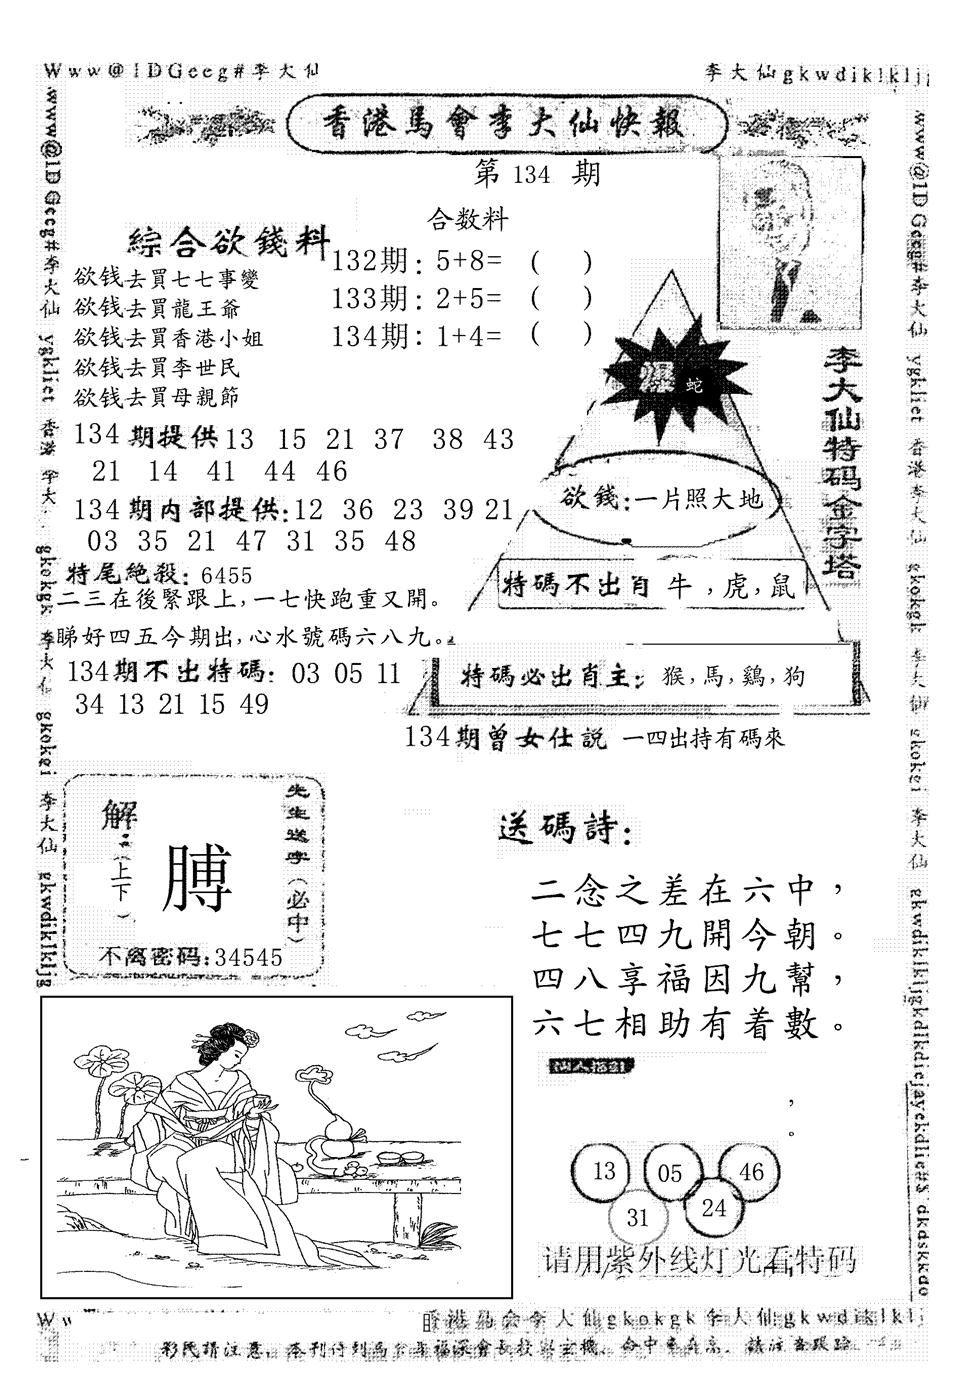 Www@1DGeeg#李大仙
李大仙gkwdiklkljg
香港馬會李大仙快報
第 134 期
合数料
綜合欲錢料
132期: 5+8= ( )
133期: 2+5= ( )
134期: 1+4= ( )
欲钱去買七七事變
欲钱去買龍王爺
欲钱去買香港小姐
欲钱去買李世民
欲钱去買母親節
134期提供 13 15 21 37 38 43
21 14 41 44 46
134期内部提供:12 36 23 39 21
03 35 21 47 31 35 48
特尾絶殺: 6455
二三在後緊跟上,一七快跑重又開。
睇好四五今期出,心水號碼六八九。
134期不出特碼: 03 05 11
34 13 21 15 49
李大仙特码金字塔
爆 蛇
欲錢:一片照大地
特碼不出肖 牛,虎,鼠
特碼必出肖主: 猴,馬,鷄,狗
134期曾女仕説 一四出持有碼來
先生送字(必中)
解:(上下)
膊
不离密码:34545
送碼詩:
二念之差在六中,
七七四九開今朝。
四八享福因九幫,
六七相助有着數。
,
。
13 05 46
31 24
请用紫外线灯光看特码
www@1DGeeg#李大仙 ygkliet 香港李大仙 gkokgk 李大仙 gkokei 李大仙 gkwdiklkljg
港馬會李大仙gkokgk李大仙gkwdiklklj